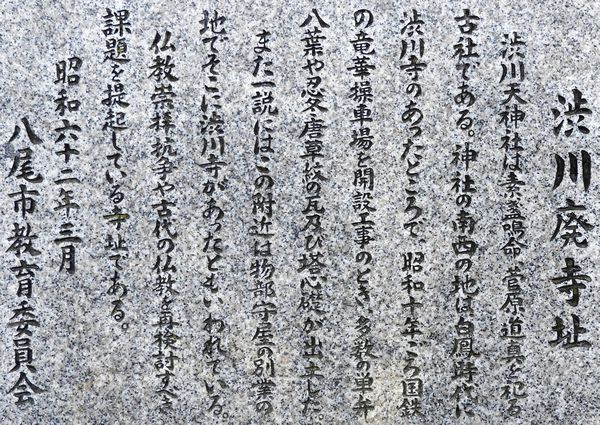 渋川廃寺址
渋川天神社は素盞嗚命 菅原道真を祀る
古社である。神社の南西の地は白鳳時代に
渋川寺のあったところで、昭和十年ごろ国鉄
の竜華操車場を開設工事のとき、多数の単弁
八葉や忍冬唐草紋の瓦及び塔心礎が出土した。
また一説にはこの附近は物部守屋の別業の
地でそこに渋川寺があったともいわれている。
仏教崇拝抗争や古代の仏教を再検討すべき
課題を提起している寺址である。
昭和六十二年三月
八尾市教育委員会